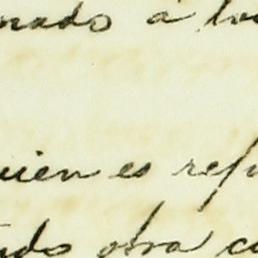 nado á lo
uien es refu
ado otra co